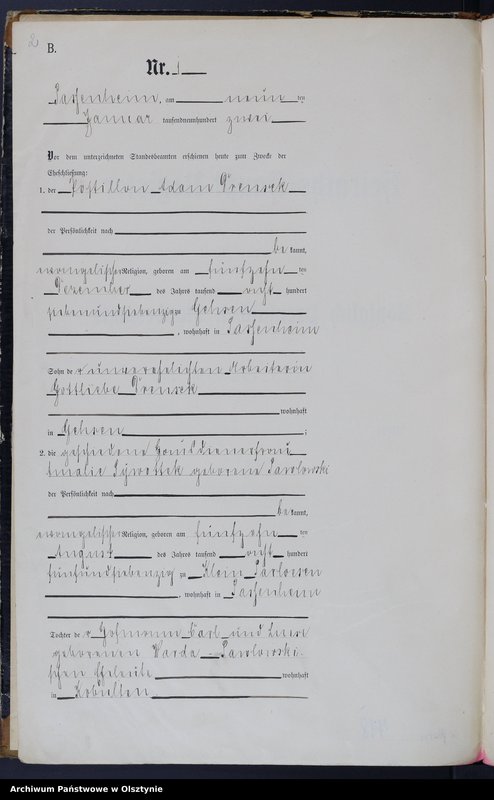 2
B.
Nr. 1
Passenheim, am neun ten
Januar tausendneunhundert zwei
Vor dem unterzeichneten Standesbeamten erschienen heute zum Zwecke der
Eheschließung:
1. der Postillon Adam
der Persönlichkeit nach
be kannt,
evangelischer Religion, geboren am fünfzehn ten
Dezember des Jahres tausend acht hundert
siebenundsiebenzig zu Gehsen
, wohnhaft in Passenheim
Sohn der unverehelichten Arbeiterin
Gottliebe
wohnhaft
in Gehsen ;
2. die geschiedene Hausdienerfrau
Amalie Sywottek geborene Pawlowski
der Persönlichkeit nach
be kannt,
evangelischer Religion, geboren am fünfzehn ten
August des Jahres tausend acht hundert
fünfundsiebenzig zu Klein
, wohnhaft in Passenheim
Tochter der Hofmann Carl und Luise
geborenen Warda - Pawlowski-
schen Eheleute wohnhaft
in Kobulten
Archiwum Państwowe w Olsztynie